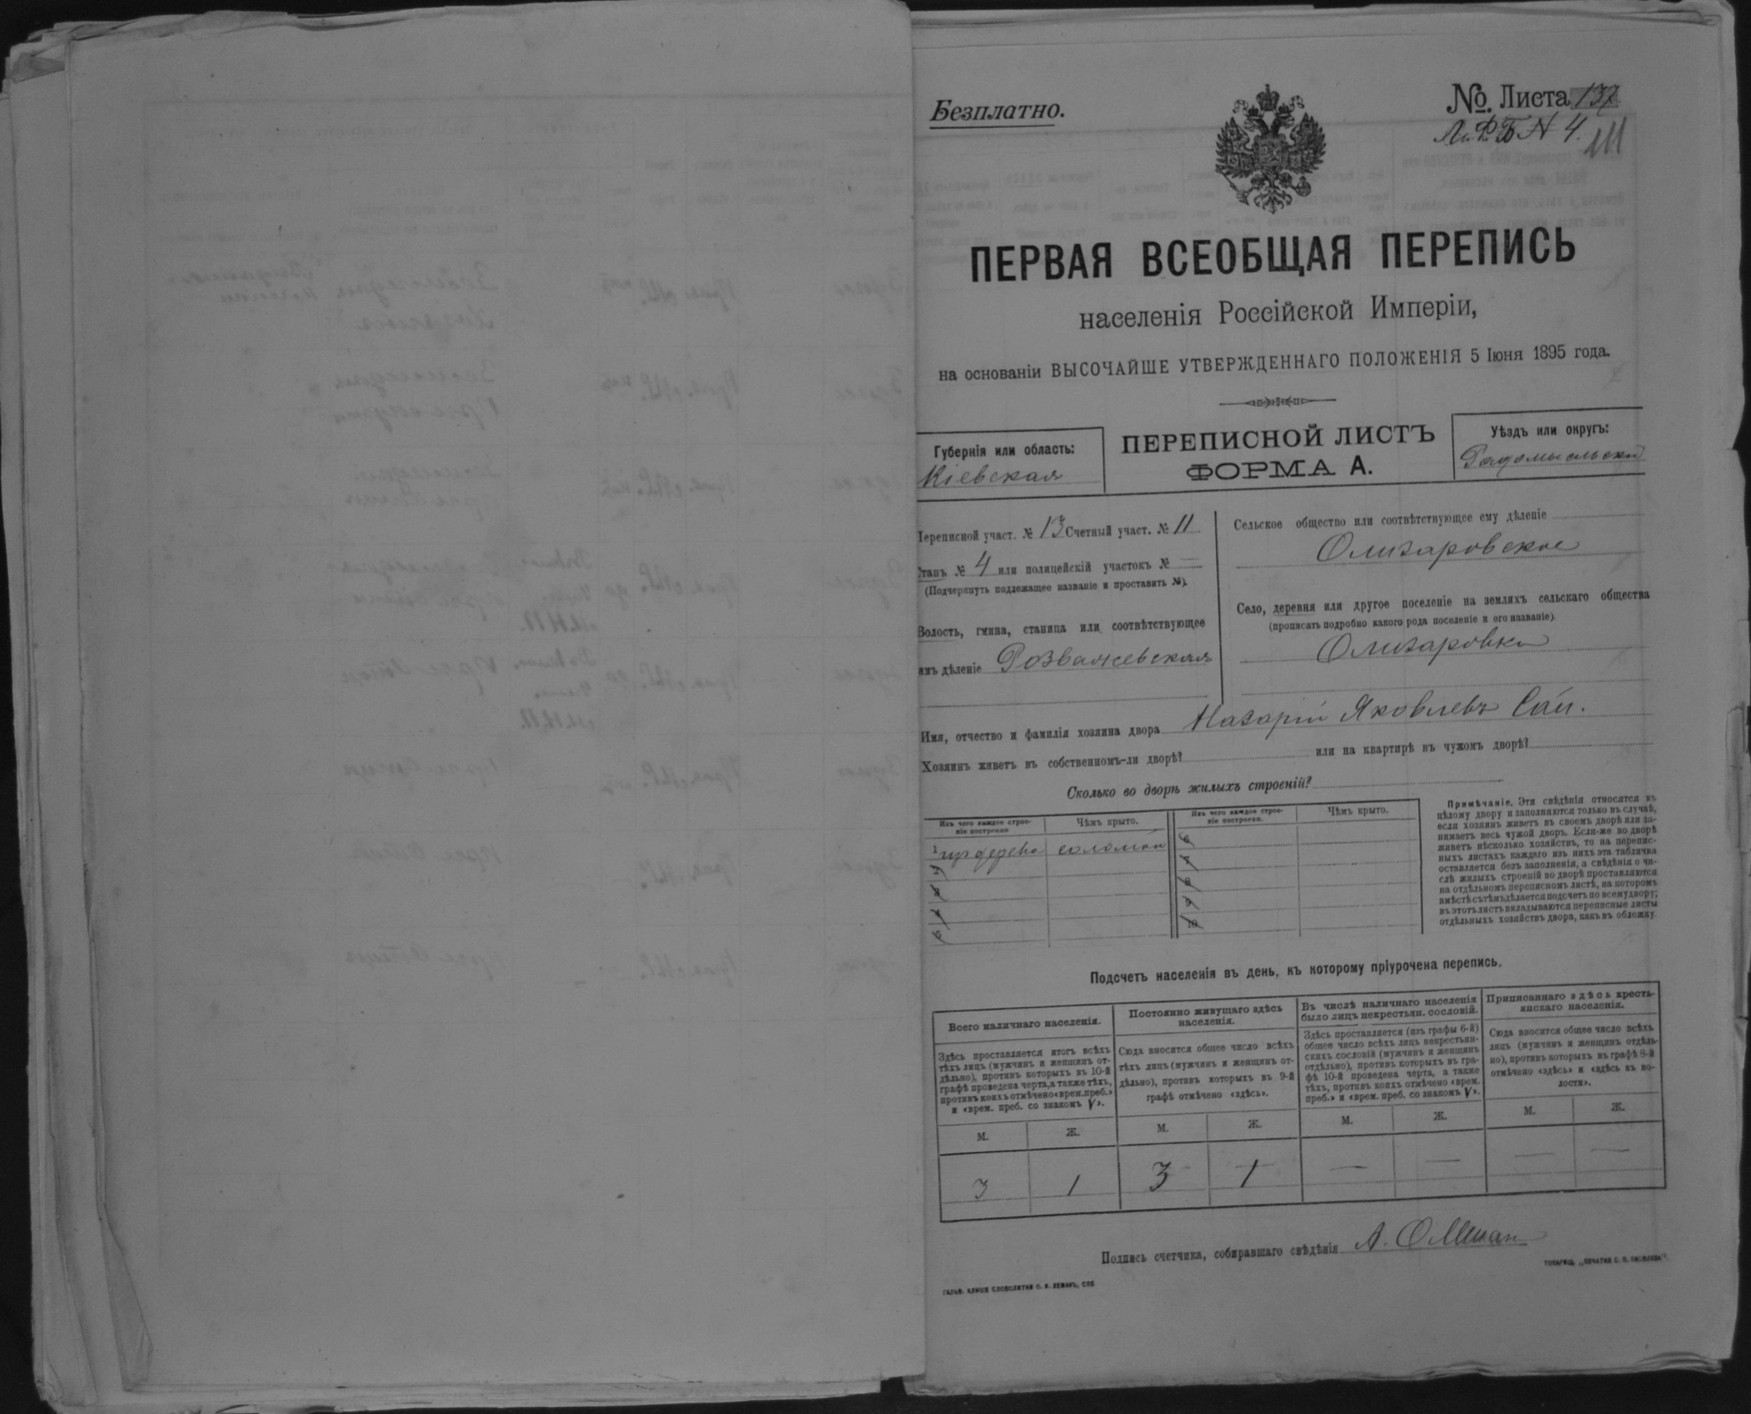 Безплатно.
№ Листа 137
Ли. Ф. Б N 4.
111
ПЕРВАЯ ВСЕОБЩАЯ ПЕРЕПИСЬ
населенія Россійской Имперіи,
на основаніи ВЫСОЧАЙШЕ УТВЕРЖДЕННАГО ПОЛОЖЕНІЯ 5 Іюня 1895 года.
Губернія или область:
Кіевская
ПЕРЕПИСНОЙ ЛИСТЪ
ФОРМА А.
Уѣздъ или округъ:
Радомысльскій
Переписной участ. № 13 Счетный участ. № 11
Станъ № 4 или полицейскій участокъ № —
(Подчеркнуть подлежащее названіе и проставить №).
Волость, гмина, станица или соотвѣтствующее
имъ дѣленіе Розважевская
Сельское общество или соотвѣтствующее ему дѣленіе
Олизаровское
Село, деревня или другое поселеніе на земляхъ сельскаго общества
(прописать подробно какого рода поселеніе и его названіе)
Олизаровка
Имя, отчество и фамилія хозяина двора Назарій Яковлевъ Сай.
Хозяинъ живетъ въ собственномъ-ли дворѣ? или на квартирѣ въ чужомъ дворѣ?
Сколько во дворѣ жилыхъ строеній?
Изъ чего каждое строе-
ніе построено
Чѣмъ крыто.
Изъ чего каждое строе-
ніе построено.
Чѣмъ крыто.
1 изъ дерева соломой
Примѣчаніе. Эти свѣдѣнія относятся къ
цѣлому двору и заполняются только въ случаѣ,
если хозяинъ живетъ въ своемъ дворѣ или за-
нимаетъ весь чужой дворъ. Если-же во дворѣ
живетъ нѣсколько хозяйствъ, то на перепис-
ныхъ листахъ каждаго изъ нихъ эта табличка
оставляется безъ заполненія, а свѣдѣнія о чи-
слѣ жилыхъ строеній во дворѣ проставляются
на отдѣльномъ переписномъ листѣ, на которомъ
вмѣстѣ съ тѣмъ дѣлается подсчетъ по всему двору;
въ этотъ листъ вкладываются переписные листы
отдѣльныхъ хозяйствъ двора, какъ въ обложку.
Подсчетъ населенія въ день, къ которому пріурочена перепись.
Всего наличнаго населенія.
Здѣсь проставляется итогъ всѣхъ
тѣхъ лицъ (мужчинъ и женщинъ от-
дѣльно), противъ которыхъ въ 10-й
графѣ проведена черта, а также тѣхъ,
противъ коихъ отмѣчено «врем. преб.»
и «врем. преб. со знакомъ V».
Постоянно живущаго здѣсь
населенія.
Сюда вносится общее число всѣхъ
тѣхъ лицъ (мужчинъ и женщинъ от-
дѣльно), противъ которыхъ въ 9-й
графѣ отмѣчено «здѣсь».
Въ числѣ наличнаго населенія
было лицъ некрестьян. сословій.
Здѣсь проставляется (изъ графы 6-й)
общее число всѣхъ лицъ некрестьян-
скихъ сословій (мужчинъ и женщинъ
отдѣльно), противъ которыхъ въ гра-
фѣ 10-й проведена черта, а также
тѣхъ, противъ коихъ отмѣчено «врем.
преб.» и «врем. преб. со знакомъ V».
Приписаннаго здѣсь кресть-
янскаго населенія.
Сюда вносится общее число всѣхъ
лицъ (мужчинъ и женщинъ отдѣль-
но), противъ которыхъ въ графѣ 8-й
отмѣчено «здѣсь» и «здѣсь въ во-
лости».
М. Ж. М. Ж. М. Ж. М. Ж.
3 1 3 1 — — — —
Подпись счетчика, собиравшаго свѣдѣнія А.